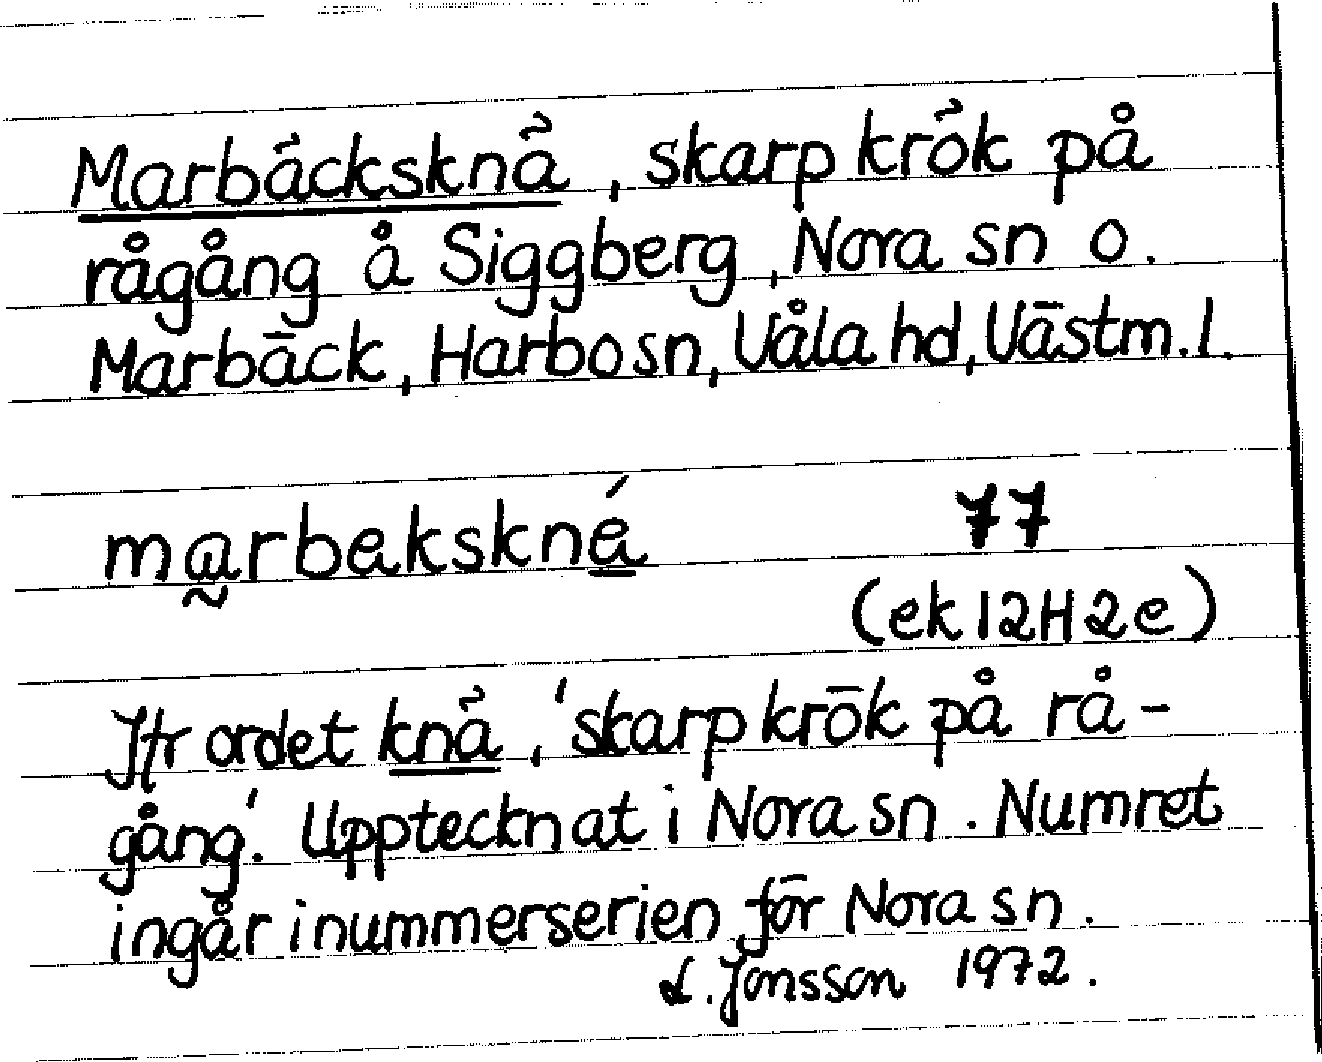 Marbäcksknä, skarp krök på
rågång å Siggberg, Nora sn o.
Marbäck, Harbo sn, Våla hd, Västm. l.
marbekskné 77
(ek 12H2e)
Jfr ordet knä, 'skarp krök på rå-
gång'. Upptecknat i Nora sn. Numret
ingår i nummerserien för Nora sn.
L. Jonsson 1972.